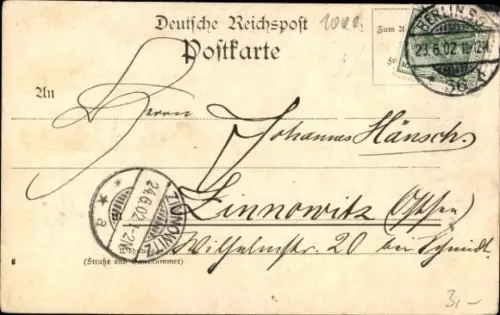 Deutsche Reichspost
Postkarte
1000.
Zum A
BERLIN S.
23.6.02. 11-12V.
36
An
Herrn
Johannes Hänsch.
Zinnowitz (Ostsee)
Wilhelmstr. 20 bei Schmidt
ZINNOWITZ
24.6.02.
a
(Straße und Hausnummer)
3,-